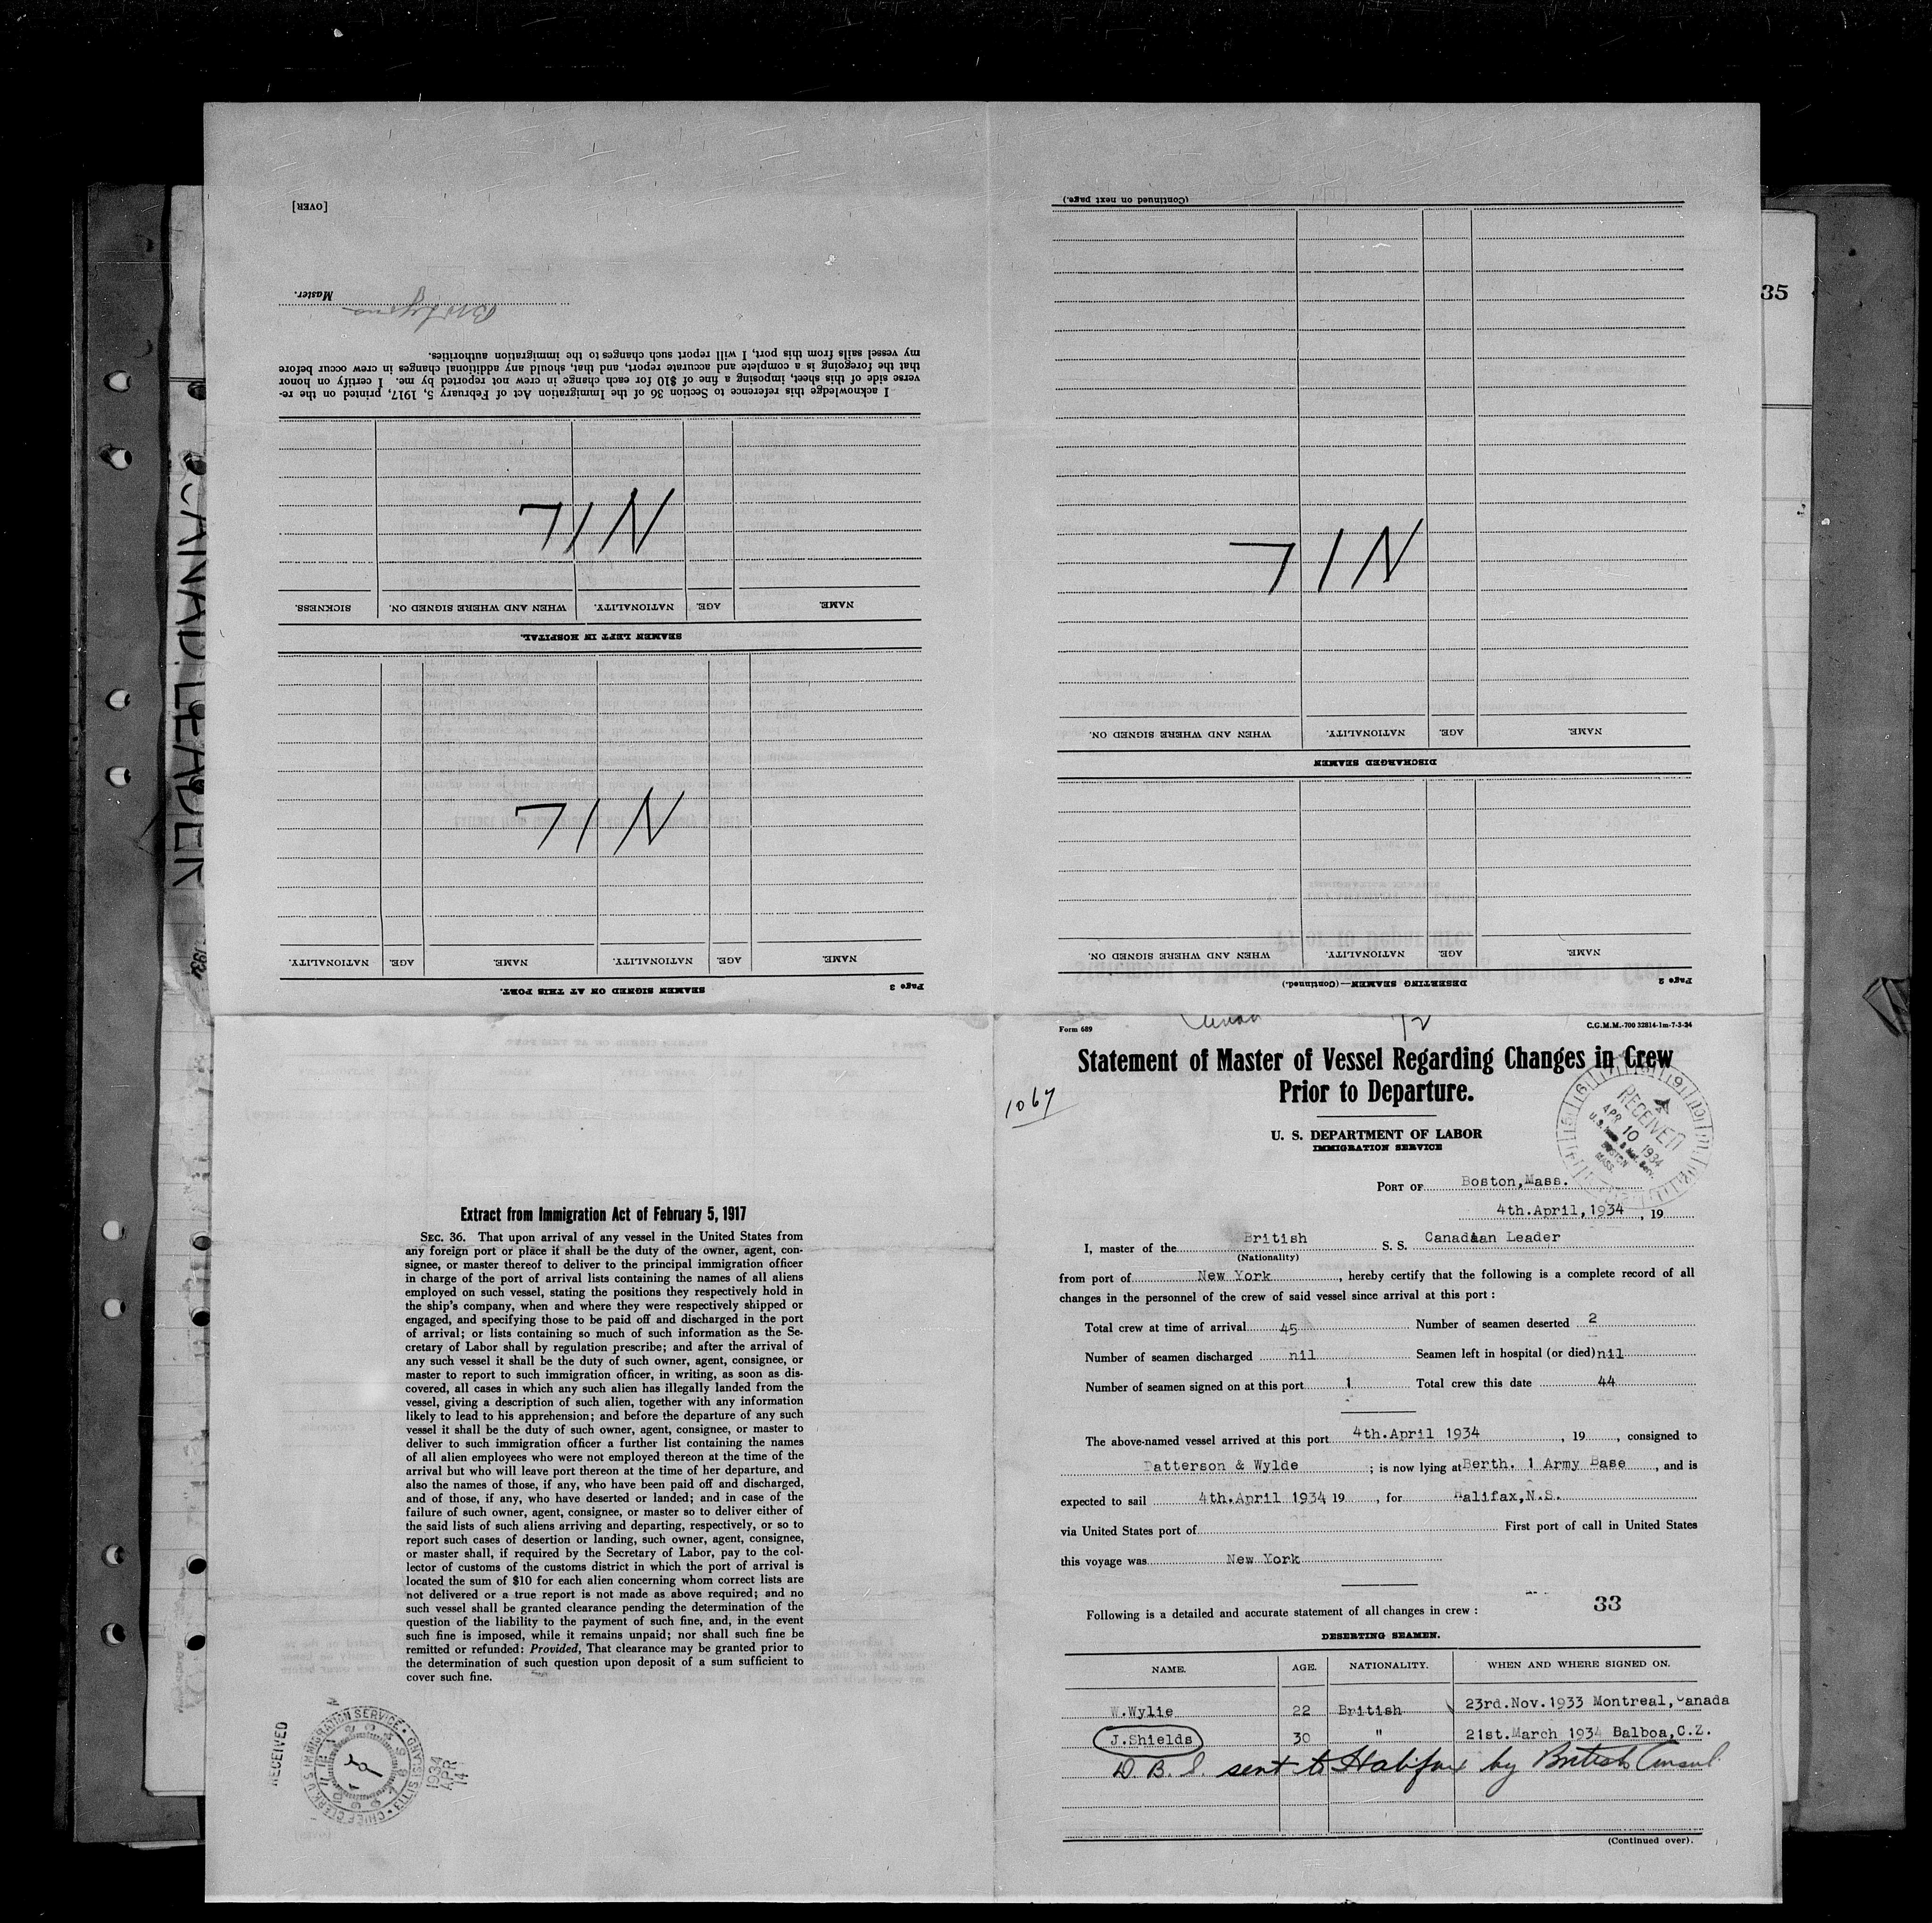 CANAD. LEADER
35
[OVER]
Master.
I acknowledge this reference to Section 36 of the Immigration Act of February 5, 1917, printed on the re-
verse side of this sheet, imposing a fine of $10 for each change in crew not reported by me. I certify on honor
that the foregoing is a complete and accurate report, and that, should any additional changes in crew occur before
my vessel sails from this port, I will report such changes to the immigration authorities.
NIL
NAME. AGE. NATIONALITY. WHEN AND WHERE SIGNED ON. SICKNESS.
SEAMEN LEFT IN HOSPITAL.
NIL
NAME. AGE. NATIONALITY. NAME. AGE. NATIONALITY.
SEAMEN SIGNED ON AT THIS PORT.
Page 3
(Continued on next page.)
NIL
NAME. AGE. NATIONALITY. WHEN AND WHERE SIGNED ON.
DISCHARGED SEAMEN
NAME. AGE. NATIONALITY. WHEN AND WHERE SIGNED ON.
DESERTING SEAMEN—(Continued.)
Page 2
Extract from Immigration Act of February 5, 1917
SEC. 36. That upon arrival of any vessel in the United States from
any foreign port or place it shall be the duty of the owner, agent, con-
signee, or master thereof to deliver to the principal immigration officer
in charge of the port of arrival lists containing the names of all aliens
employed on such vessel, stating the positions they respectively hold in
the ship's company, when and where they were respectively shipped or
engaged, and specifying those to be paid off and discharged in the port
of arrival; or lists containing so much of such information as the Se-
cretary of Labor shall by regulation prescribe; and after the arrival of
any such vessel it shall be the duty of such owner, agent, consignee, or
master to report to such immigration officer, in writing, as soon as dis-
covered, all cases in which any such alien has illegally landed from the
vessel, giving a description of such alien, together with any information
likely to lead to his apprehension; and before the departure of any such
vessel it shall be the duty of such owner, agent, consignee, or master to
deliver to such immigration officer a further list containing the names
of all alien employees who were not employed thereon at the time of the
arrival but who will leave port thereon at the time of her departure, and
also the names of those, if any, who have been paid off and discharged,
and of those, if any, who have deserted or landed; and in case of the
failure of such owner, agent, consignee, or master so to deliver either of
the said lists of such aliens arriving and departing, respectively, or so to
report such cases of desertion or landing, such owner, agent, consignee,
or master shall, if required by the Secretary of Labor, pay to the col-
lector of customs of the customs district in which the port of arrival is
located the sum of $10 for each alien concerning whom correct lists are
not delivered or a true report is not made as above required; and no
such vessel shall be granted clearance pending the determination of the
question of the liability to the payment of such fine, and, in the event
such fine is imposed, while it remains unpaid; nor shall such fine be
remitted or refunded: Provided, That clearance may be granted prior to
the determination of such question upon deposit of a sum sufficient to
cover such fine.
RECEIVED
CHIEF CLERK U.S. IMMIGRATION SERVICE ELLIS ISLAND
1934 APR 14
Form 689
C.G.M.M.-700 32814-1m-7-3-34
Statement of Master of Vessel Regarding Changes in Crew
Prior to Departure.
1067
U. S. DEPARTMENT OF LABOR
IMMIGRATION SERVICE
RECEIVED
APR 10 1934
BOSTON
MASS.
PORT OF Boston,Mass.
4th.April,1934, 19
I, master of the British S. S. Canadian Leader
(Nationality)
from port of New York, hereby certify that the following is a complete record of all
changes in the personnel of the crew of said vessel since arrival at this port :
Total crew at time of arrival 45 Number of seamen deserted 2
Number of seamen discharged nil Seamen left in hospital (or died) nil
Number of seamen signed on at this port 1 Total crew this date 44
The above-named vessel arrived at this port 4th.April 1934, 19, consigned to
Patterson & Wylde ; is now lying at Berth. 1 Army Base, and is
expected to sail 4th.April 1934 19, for Halifax,N.S.
via United States port of First port of call in United States
this voyage was New York
33
Following is a detailed and accurate statement of all changes in crew :
DESERTING SEAMEN.
NAME. AGE. NATIONALITY. WHEN AND WHERE SIGNED ON.
W.Wylie 22 British 23rd.Nov.1933 Montreal,Canada
J.Shields 30 " 21st.March 1934 Balboa,C.Z.
D. B. S. sent to Halifax by British Consul
(Continued over).